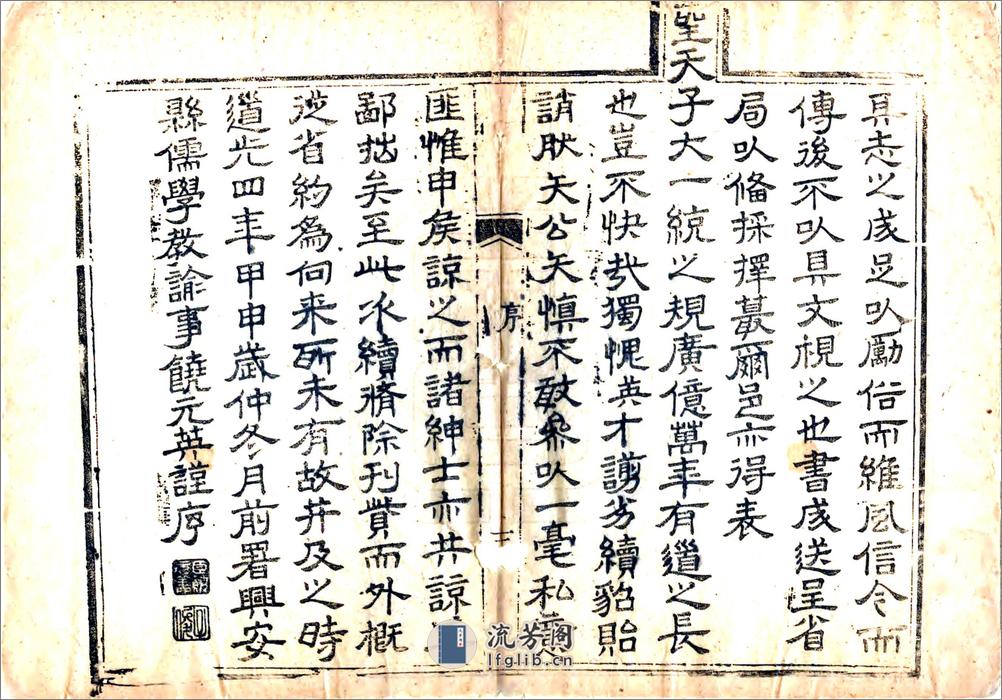 具志之成足以勵俗而維風信今而
傳後不以具文視之也書成送呈省
局以備採擇蕞爾邑亦得表
聖天子大一統之規廣億萬年有道之長
也豈不快哉獨愧英才謭劣續貂貽
誚肰矢公矢慎不敢參以一毫私
匪惟申矦諒之而諸紳士亦共諒
鄙拙矣至此次續脩除刊貲而外概
從省約為向来所未有故并及之時
道光四年甲申歲仲冬月前署興安
縣儒學教諭事饒元英謹序
序
三
流芳閣
lfglib.cn